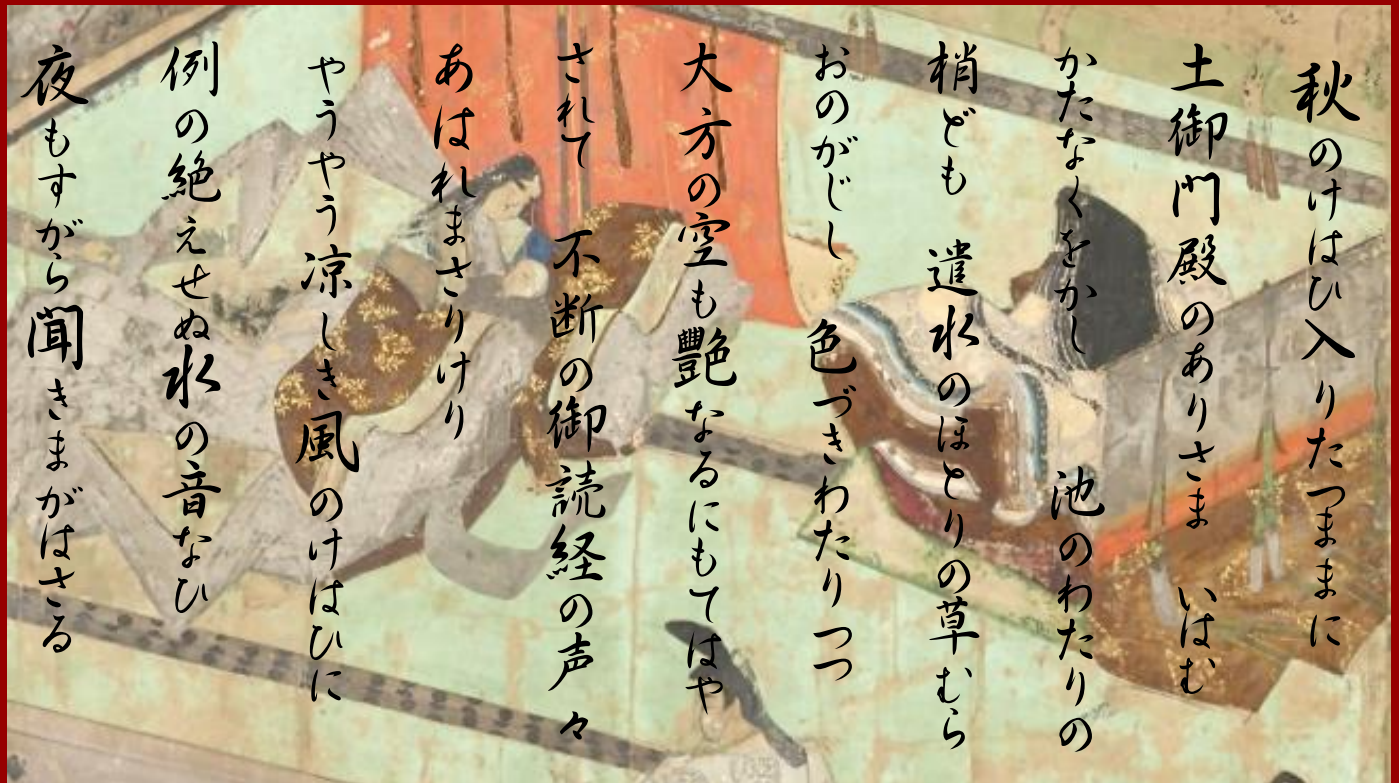 秋のけはひ入りたつままに
土御門殿のありさま　いはむ
かたなくをかし　池のわたりの
梢ども　遣水のほとりの草むら
おのがじし　色づきわたりつつ
大方の空も艶なるにもてはや
されて　不断の御読経の声々
あはれまさりけり
やうやう凉しき風のけはひに
例の絶えせぬ水の音なひ
夜もすがら聞きまがはさる